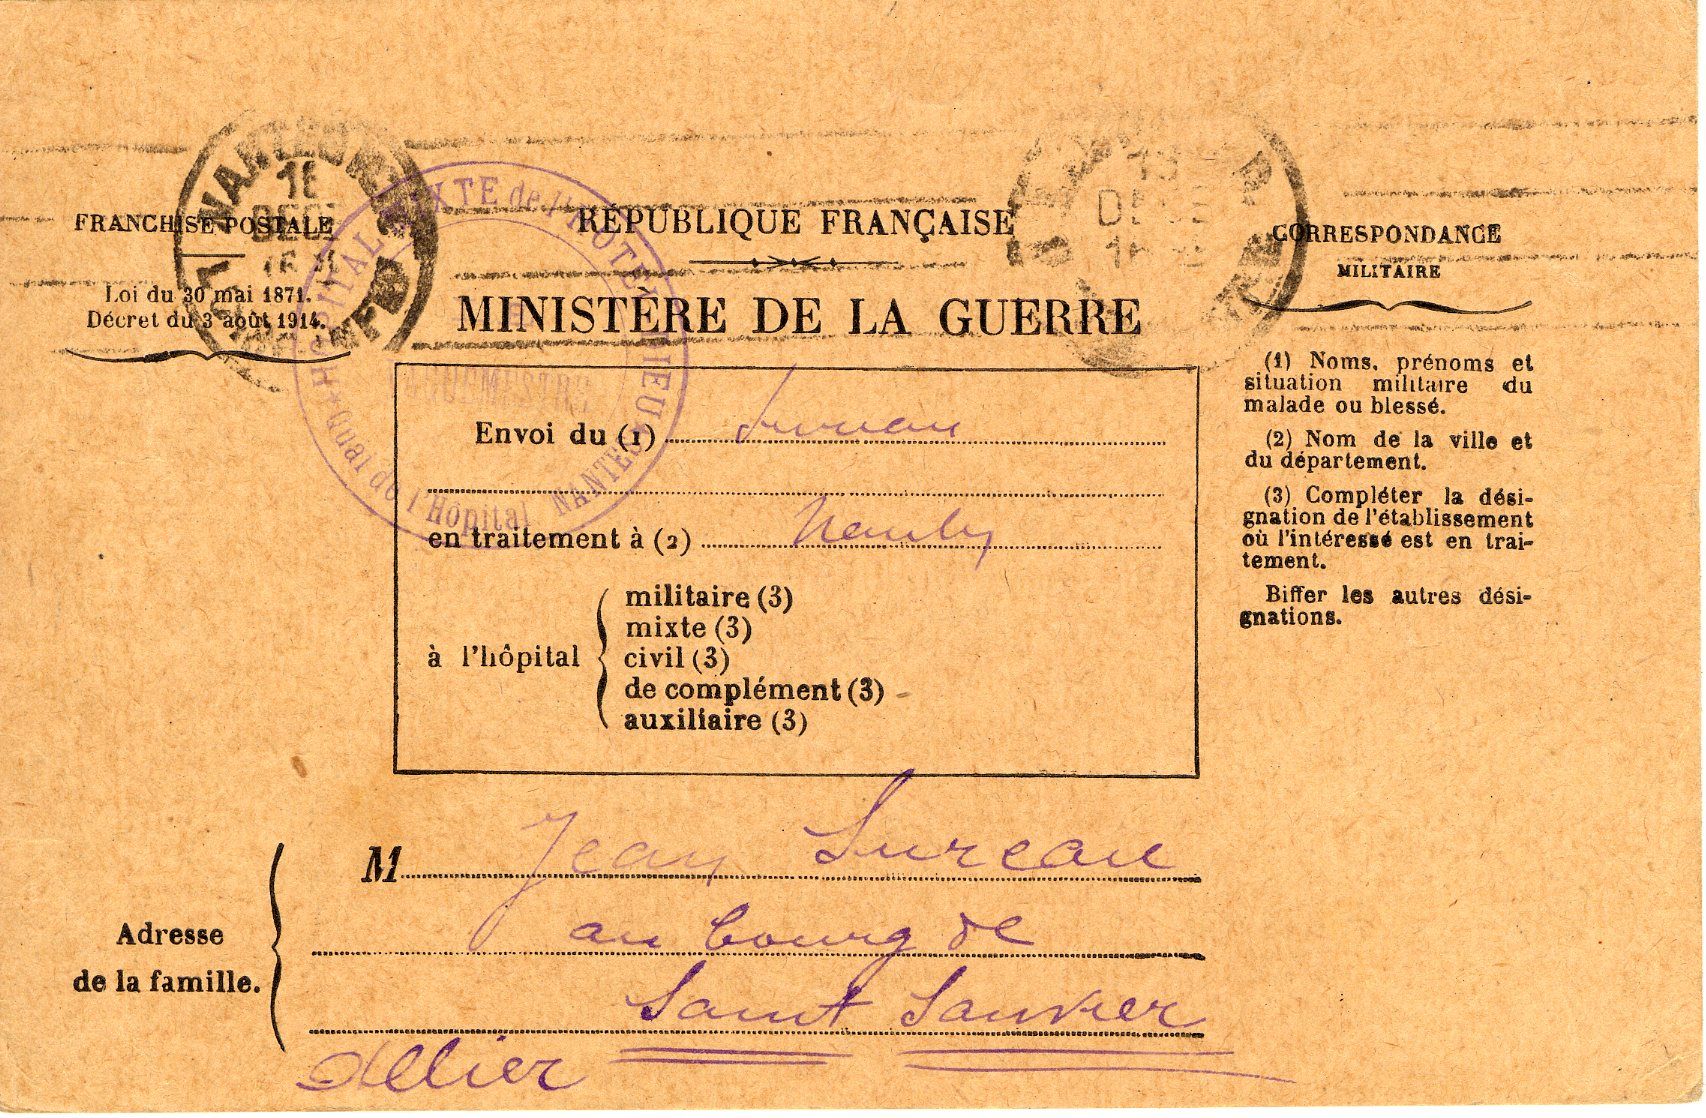 FRANCHISE POSTALE
Loi du 30 mai 1871.
Décret du 3 août 1914.
RÉPUBLIQUE FRANÇAISE
MINISTÈRE DE LA GUERRE
CORRESPONDANCE
MILITAIRE
HOPITAL MIXTE de l'HOTEL DIEU
Quai de l'Hôpital NANTES
Envoi du (1) Sureau
en traitement à (2)
à l'hôpital
militaire (3)
mixte (3)
civil (3)
de complément (3)
auxiliaire (3)
(1) Noms, prénoms et
situation militaire du
malade ou blessé.
(2) Nom de la ville et
du département.
(3) Compléter la dési-
gnation de l'établissement
où l'intéressé est en trai-
tement.
Biffer les autres dési-
gnations.
Adresse
de la famille.
M Jean Sureau
au bourg de
Saint Sauvier
Allier